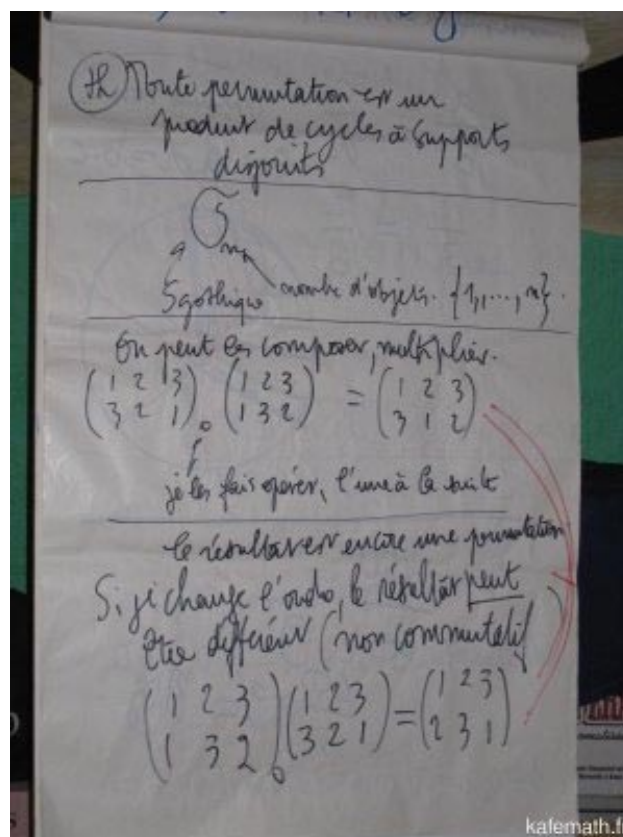 th Toute permutation est un
produit de cycles à supports
disjoints
S n
S gothique nombre d'objets. {1,...,n}.
On peut les composer, multiplier.
( 1 2 3 ) ( 1 2 3 ) = ( 1 2 3 )
( 3 2 1 ) o ( 1 3 2 ) ( 3 1 2 )
je les fais opérer, l'une à la suite
le résultat est encore une permutation
Si je change l'ordre, le résultat peut
être différent (non commutatif)
( 1 2 3 ) ( 1 2 3 ) = ( 1 2 3 )
( 1 3 2 ) o ( 3 2 1 ) ( 2 3 1 )
kafemath.f